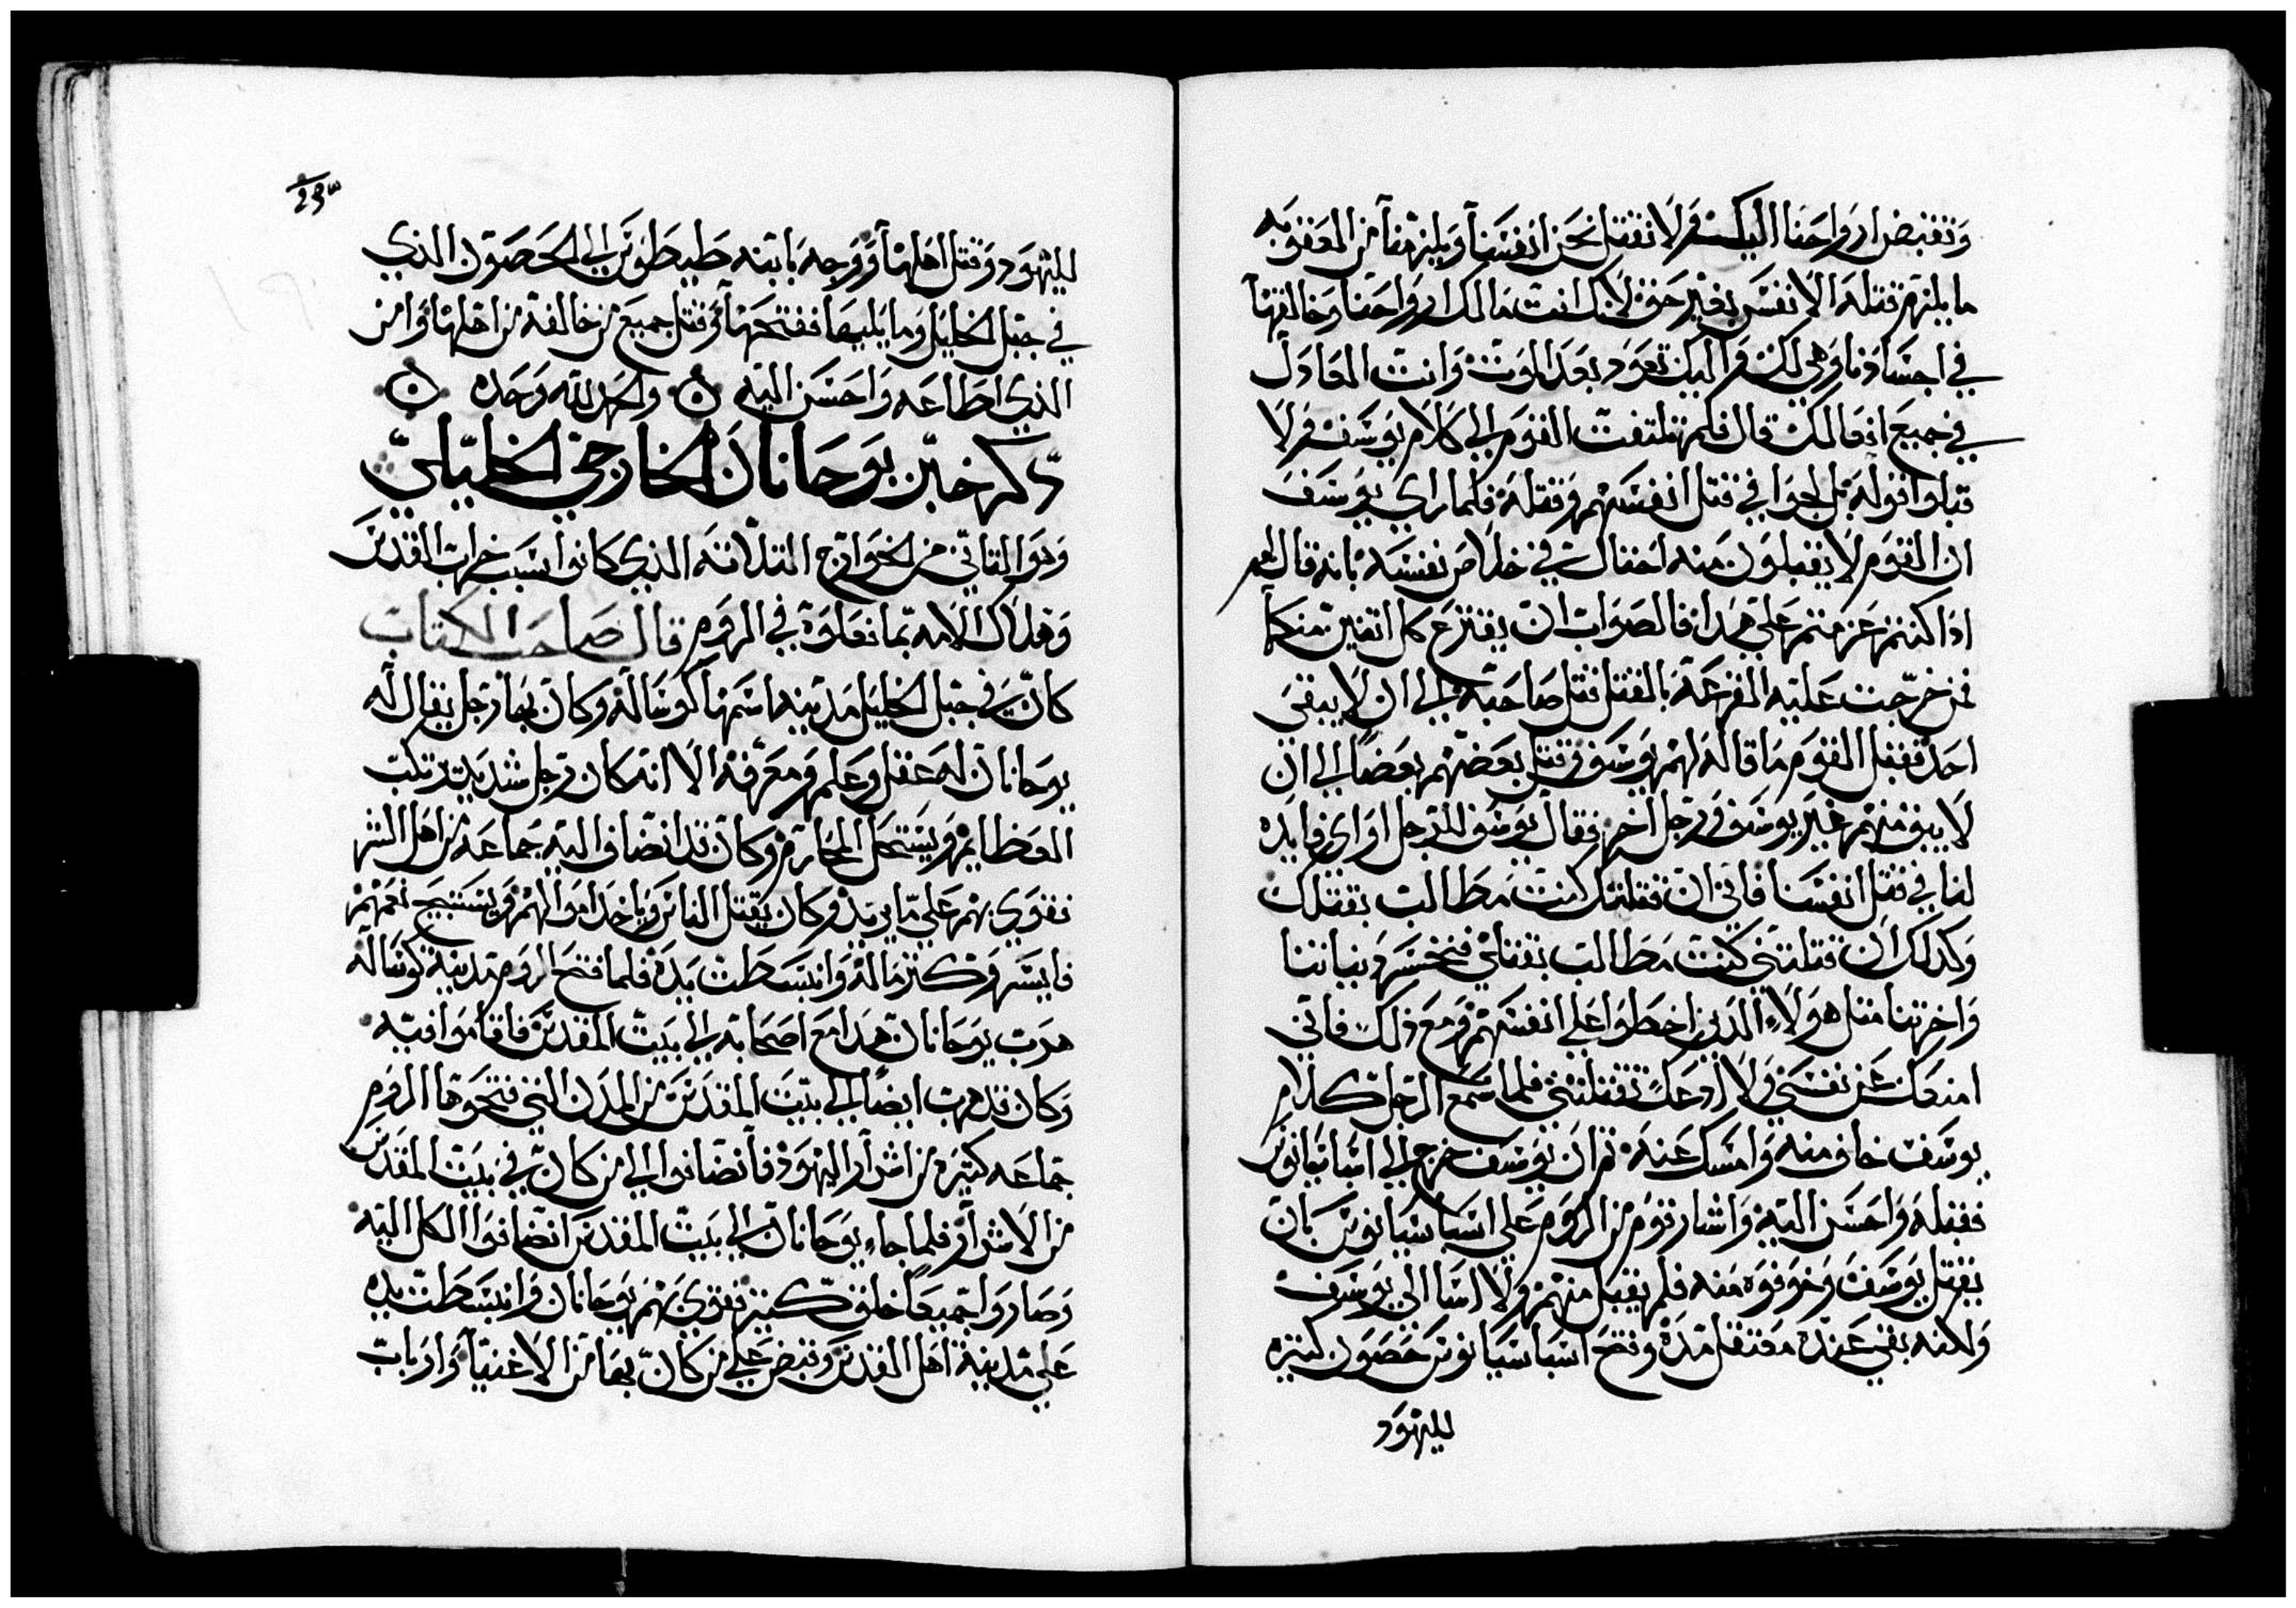 وتقبض ارواحنا اليك ولا نقتل نحن انفسنا ويلزمنا من العقوبه
ما يلزم قتلة الانفس بغير حق لانك انت مالك ارواحنا وخالقها
في اجسادنا وهي لك واليك تعود بعد الموت وانت العادل
في جميع افعالك قال فلم تلتفت القوم الي كلام يوسف ولا
قبلوا قوله بل لجوا في قتل انفسهم وقتله فلما راي يوسف
ان القوم لا يقبلون منه احتال في خلاص نفسه بانه قال لهم
اذا كنتم عزمتم علي هدا فالصواب ان يقترع كل اتنين منكم
فمن خرجت عليه القرعة بالقتل قتل صاحبه الي ان لا يبقي
احد فقبل القوم ما قاله لهم يوسف وقتل بعضهم بعضا الي ان
لا يبق منهم غير يوسف ورجل اخر فقال يوسف للرجل اواي فايده
لنا في قتل انفسنا فاني ان قتلتك كنت مطالب بقتلك
وكدلك ان قتلتني كنت مطالب بقتلي فنخسر دنياتنا
واخرتنا متل هولاء الدين اخطوا علي انفسهم ومع ذلك فاني
امنعك عن نفسي ولا ادعك تقتلني فلما سمع الرجل كلام
يوسف خاف منه وامسك عنه تم ان يوسف خرج الي اسباسيانوس
فقبله واحسن اليه واشار قوم من الروم علي اسباسيانوس بان
يقتل يوسف وخوفوه منه فلم يقبل منهم ولا اسا الي يوسف
ولكنه بقي عنده معتقل مده وفتح اسباسيانوس حصون كتيره
لليهود
لليهود وقتل اهلها ووجه بابنه طيطوس الي الحصون الذي
في جبل الخليل وما يليها ففتحها وقتل جميع من خالفه من اهلها وامن
الذي اطاعه واحسن اليه ٥ والحمد لله وحده ٥
ذكر خبر يوحانان الخارجي الخليلي
وهو التاني من الخوارج التلاتة الذي كانوا سبب خراب القدس
وهلاك الامه بما فعلوة في الروم قال صاحب الكتاب
كان في جبل الخليل مدينه اسمها كوساله وكان بها رجل يقال له
يوحانان له عقل وعلم ومعرفه الا انه كان رجل شديد يرتكب
العظايم ويستحل المحارم وكان قد انضاف اليه جماعه من اهل الشر
فقوي بهم علي ما يريد وكان يقتل الناس وياخد اموالهم ويستبيح نعمهم
فايسر وكتر ماله وانبسطت يده فلما فتح الروم مدينة كوساله
هرب يوحانان هدا مع اصحابه الي بيت المقدس فاقاموا فيه
وكان قد هرب ايضا الي بيت المقدس من المدن التي فتحوها الروم
جماعه كتيره من اشرار اليهود فانضافوا الي من كان في بيت المقدس
من الاشرار فلما جاء يوحانان الي بيت المقدس انضافوا الكل اليه
وصاروا جميعا خلق كتير فقوي بهم يوحانان وانبسطت يده
علي مدينة اهل القدس وقبض علي من كان بها من الاغنيا وارباب